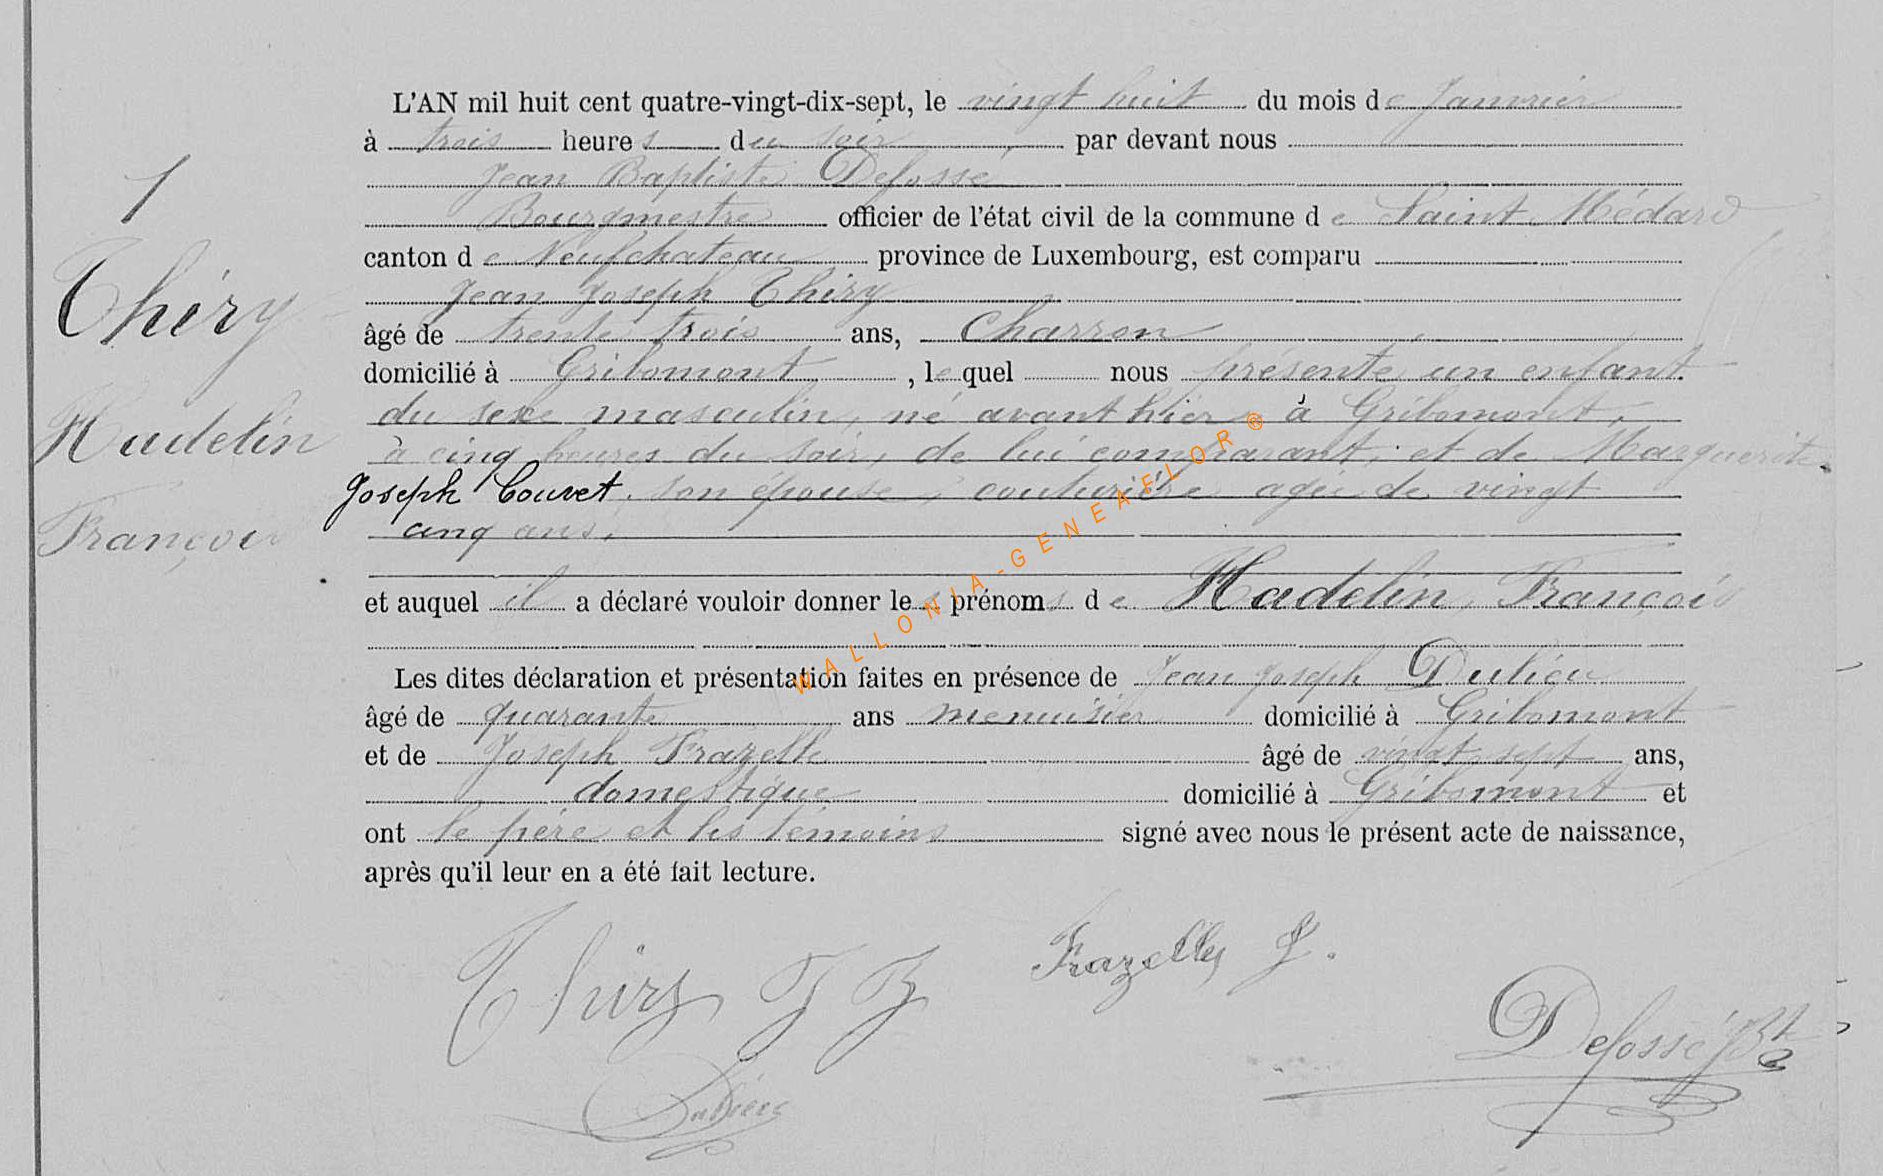 1
Thiry
Hadelin
François
L'AN mil huit cent quatre-vingt-dix-sept, le vingt huit du mois de Janvier
à trois heures du soir, par devant nous
Jean Baptiste Defossé
Bourgmestre officier de l'état civil de la commune de Saint Médard
canton de Neufchateau province de Luxembourg, est comparu
Jean Joseph Thiry
âgé de trente trois ans, Charron
domicilié à Gribomont, lequel nous présente un enfant
du sexe masculin, né avant hier, à Gribomont,
à cinq heures du soir, de lui comparant, et de Marguerite
Joseph Couvet, son épouse, couturière agée de vingt
cinq ans.
et auquel il a déclaré vouloir donner les prénoms de Hadelin, François
Les dites déclaration et présentation faites en présence de Jean Joseph Dulieu
âgé de quarante ans menuisier domicilié à Gribomont
et de Joseph Frazelle âgé de vingt sept ans,
domestique domicilié à Gribomont et
ont le père et les témoins signé avec nous le présent acte de naissance,
après qu'il leur en a été fait lecture.
Thiry J J
Frazelle J.
Defossé JBte
Dulieu
WALLONIA-GENEAFLOR ®